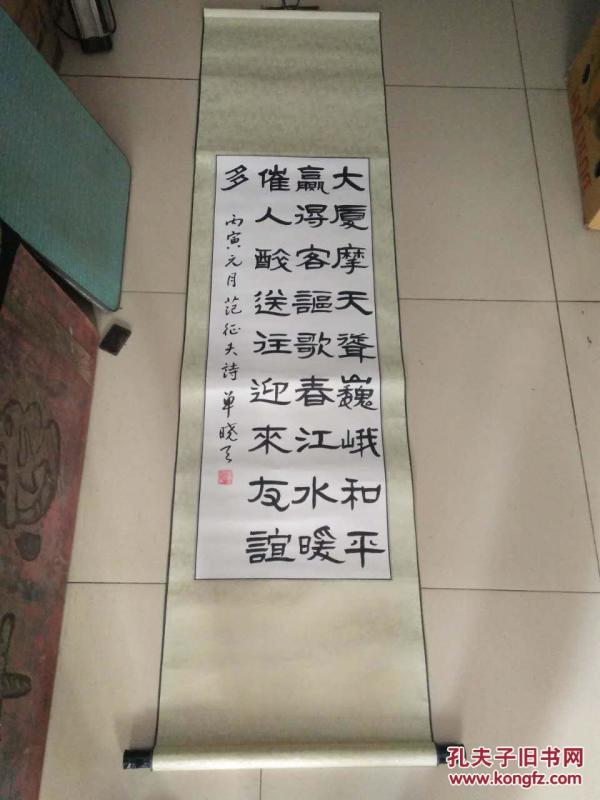 大廈摩天聳巍峨和平
贏得客謳歌春江水暖
催人送往迎來友誼
多
丙寅元月范征夫詩單曉天
孔夫子旧书网
www.kongfz.com